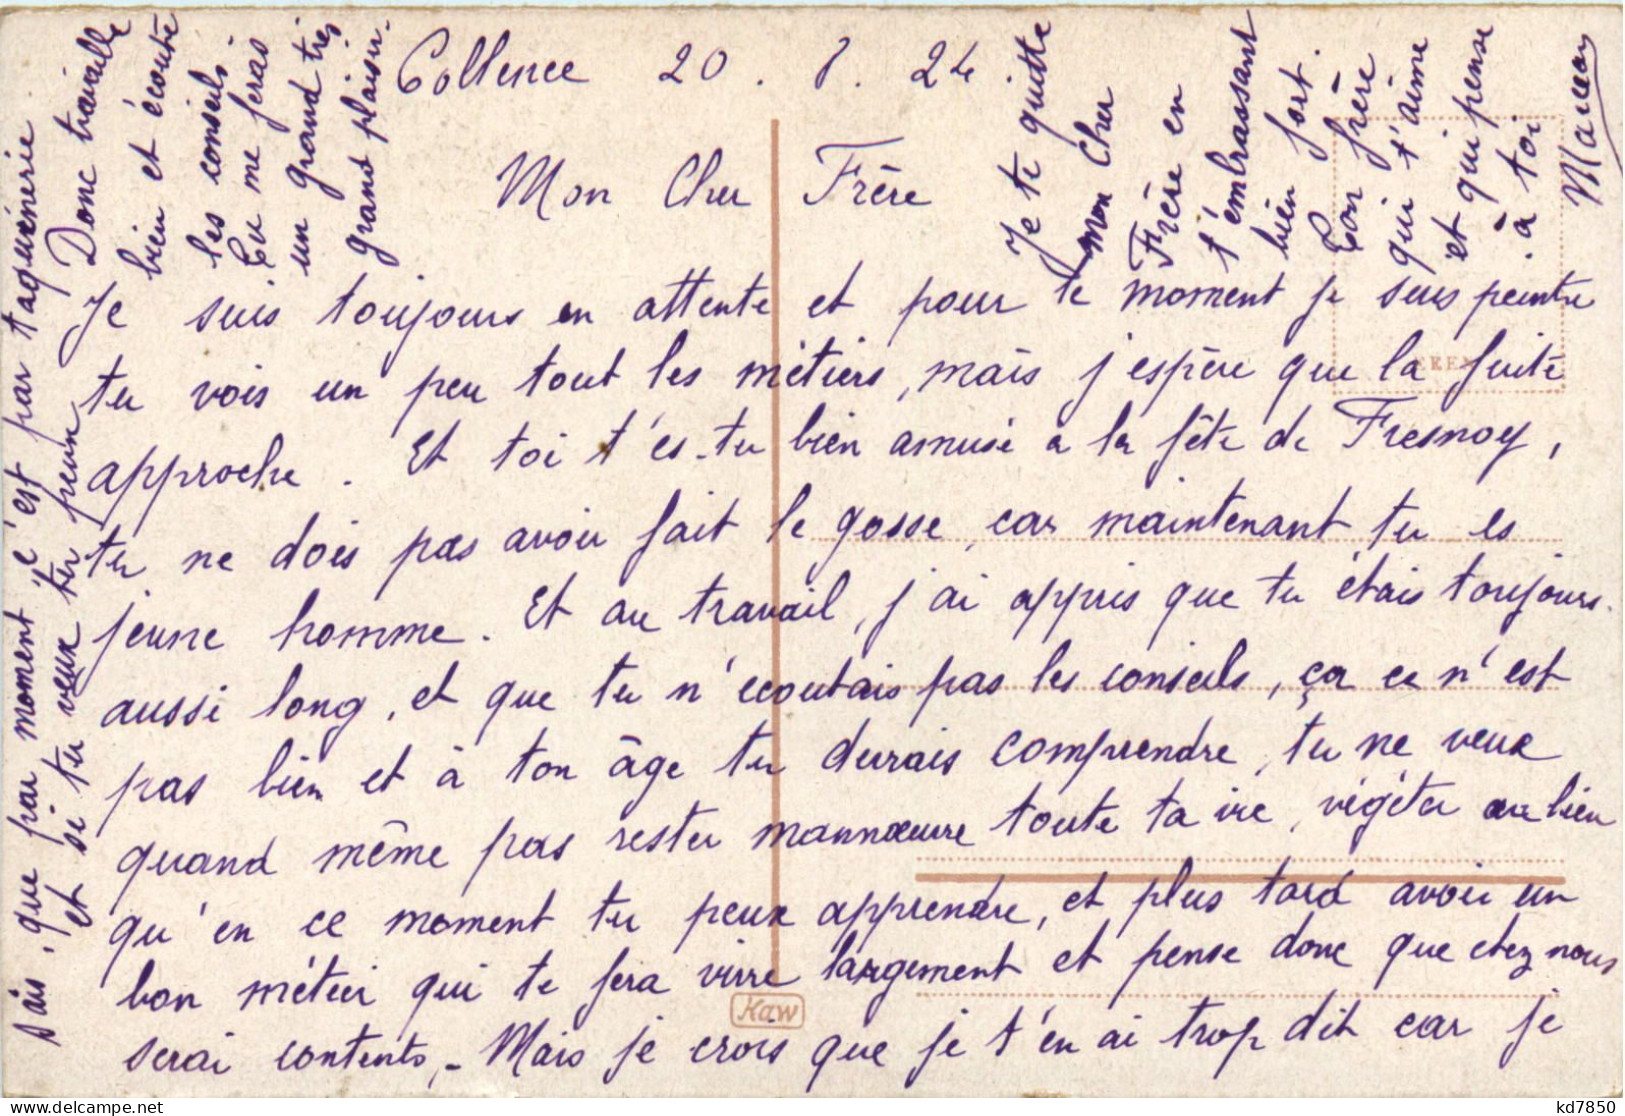 Coblence 20 . 8 . 24
Mon Cher Frère
Je suis toujours en attente et pour le moment je suis peintre
tu vois un peu tout les métiers, mais j'espère que la fuite
approche. Et toi t'es-tu bien amusé a la fête de Fresnoy,
tu ne dois pas avoir fait le gosse, car maintenant tu es
jeune homme. Et au travail, j'ai appris que tu étais toujours
aussi long, et que tu n'écoutais pas les conseils, ça ce n'est
pas bien et à ton âge tu devrais comprendre, tu ne veux
quand même pas rester mannœuvre toute ta vie, végéter au bien
qu'en ce moment tu peux apprendre, et plus tard avoir un
bon métier qui te fera vivre largement et pense donc que chez nous
serai contents,- Mais je crois que je t'en ai trop dit car je
sais, que par moment c'est par taquinerie
et si tu veux tu peux
Donc travaille
bien et écoute
les conseils
Tu me feras
un grand très
grand plaisir.
Je te quitte
mon Cher
Frère en
t'embrassant
bien fort.
Ton frère
qui t'aime
et qui pense
à toi
Kaw
kd7850